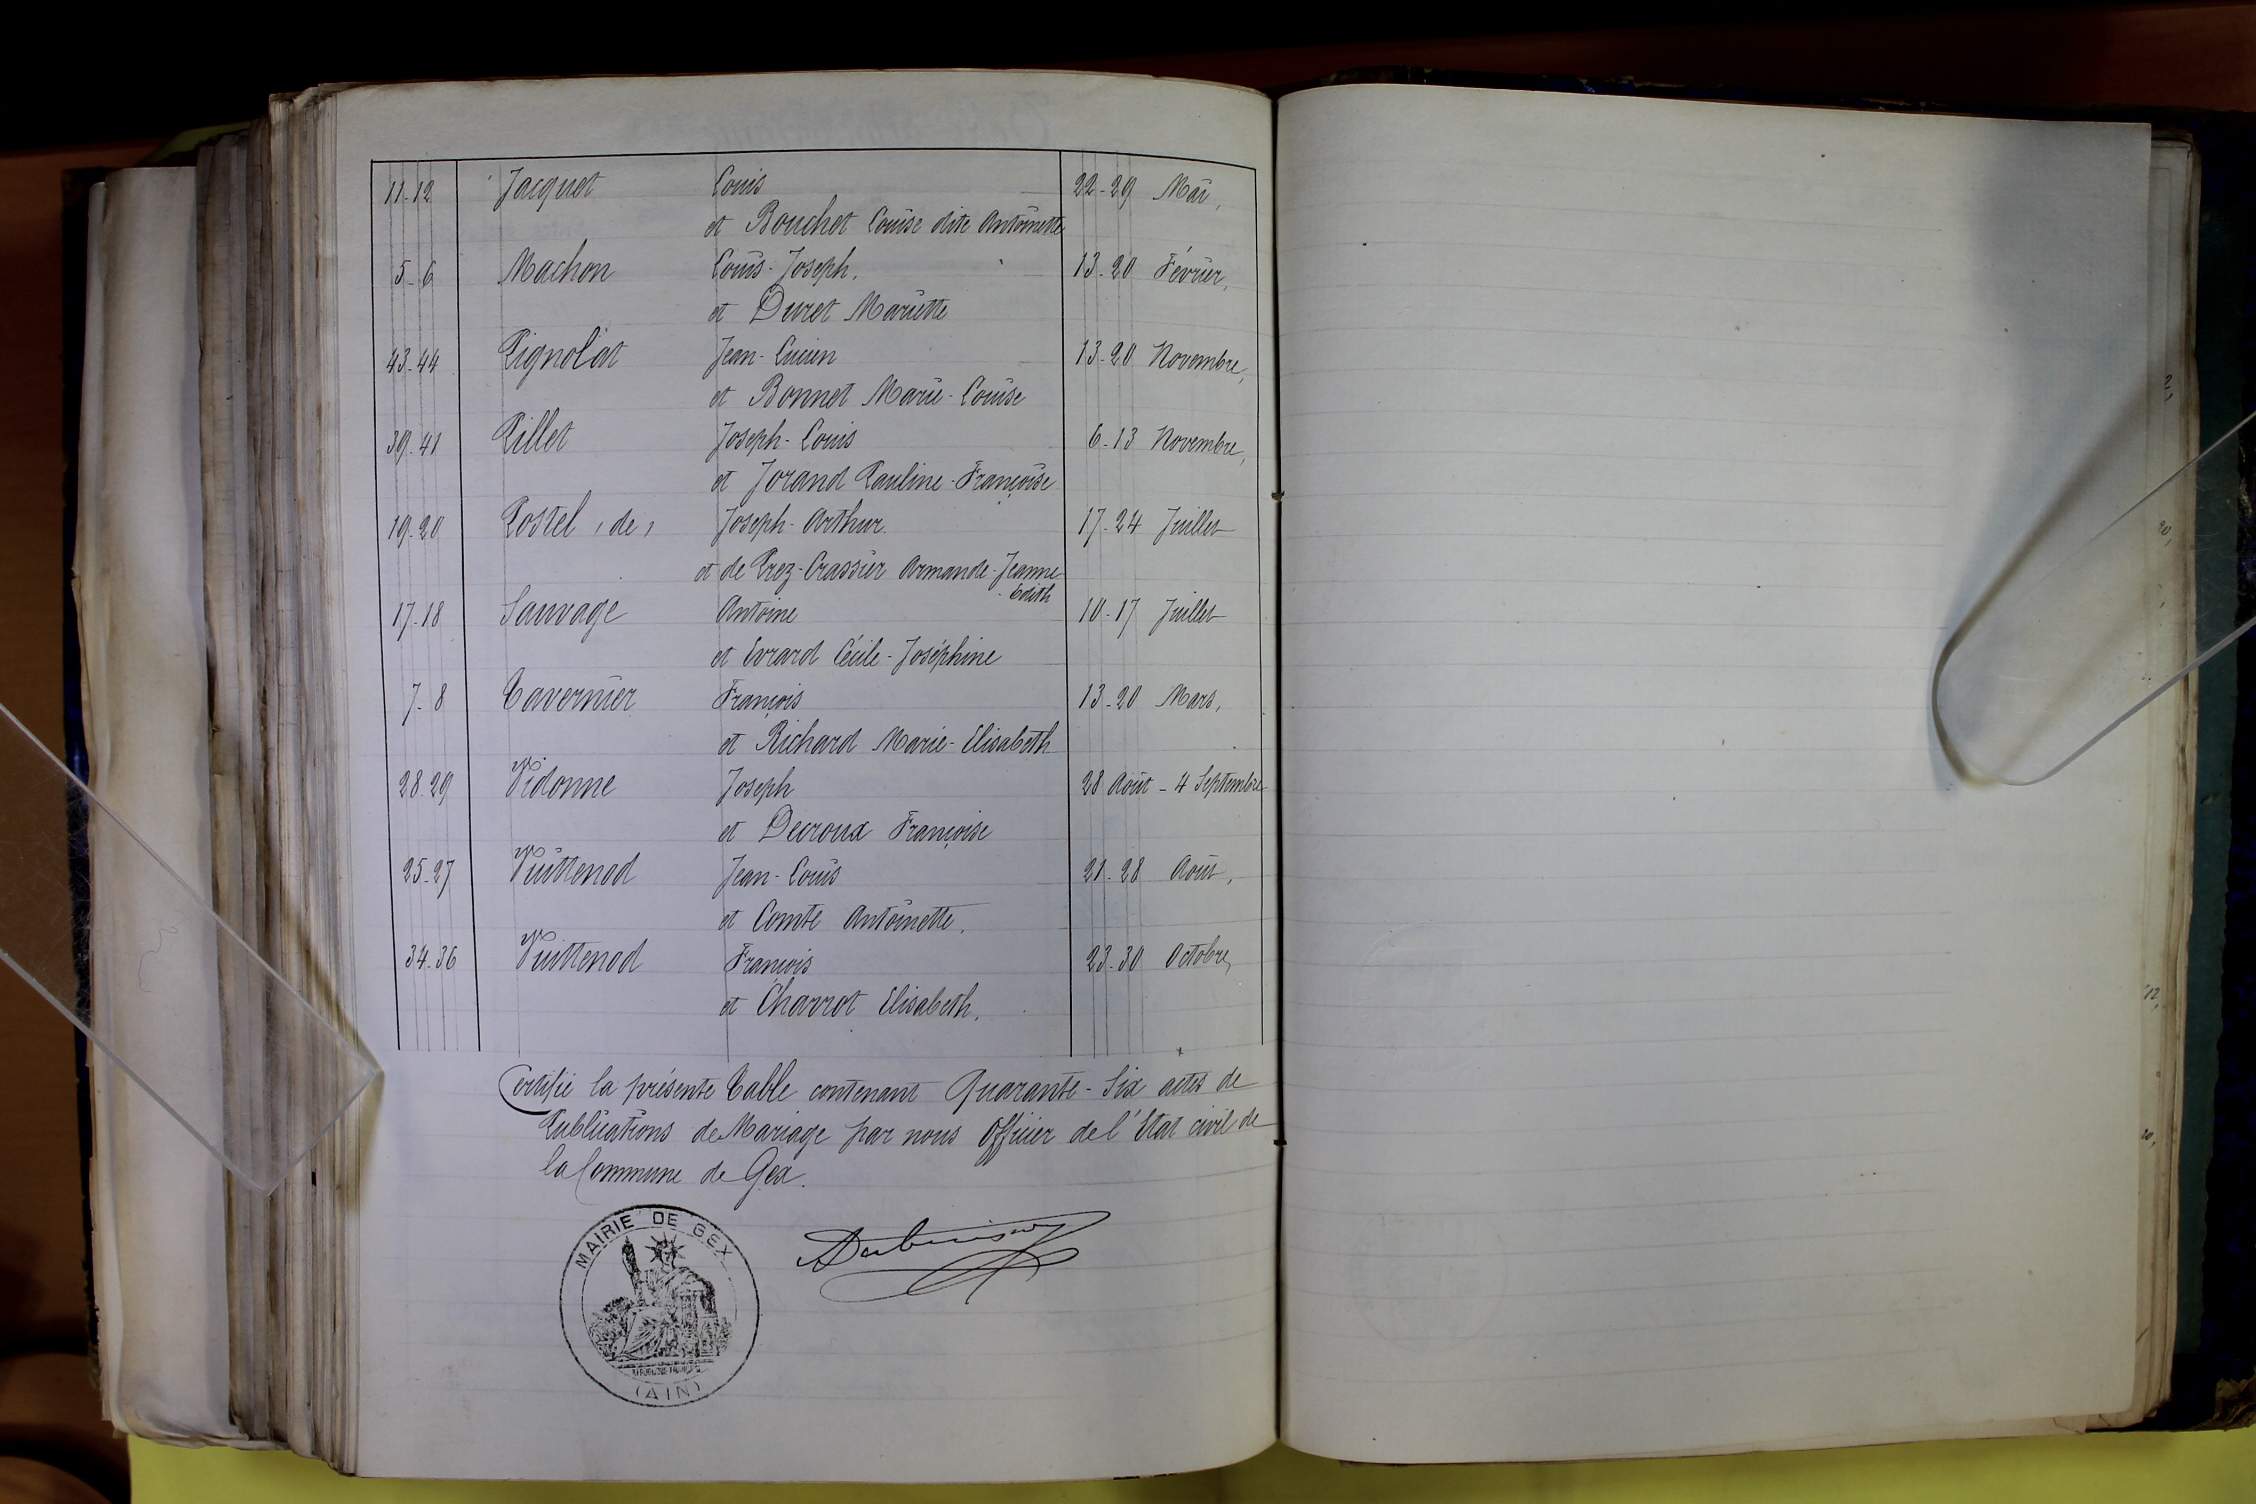 11-12 Jacquet Louis 22-29 Mai,
et Bouchet Louise dite Antoinette
5-6 Machon Louis-Joseph. 13-20 Février,
et Duret Mariette
43-44 Pignolat Jean-Lucien 13-20 Novembre,
et Bonnet Marie-Louise
39-41 Pillet Joseph-Louis 6-13 Novembre,
et Jorand Pauline-Françoise
19-20 Postel, de, Joseph-Arthur. 17-24 Juillet
et de Prez-Crassier Armande-Jeanne
-Edith
17-18 Sauvage Antoine 10-17 Juillet
et Evrard Cécile-Joséphine
7-8 Tavernier François 13-20 Mars,
et Richard Marie-Elisabeth
28-29 Vidonne Joseph 28 Août - 4 Septembre
et Decroux Françoise
25-27 Vuittenod Jean-Louis 21-28 Août,
et Comte Antoinette.
34-36 Vuittenod François 23-30 Octobre,
et Charrot Elisabeth.
Certifié la présente Table contenant Quarante-Six actes de
Publications de Mariage par nous Officier de l'État civil de
la Commune de Gex.
MAIRIE DE GEX
(AIN)